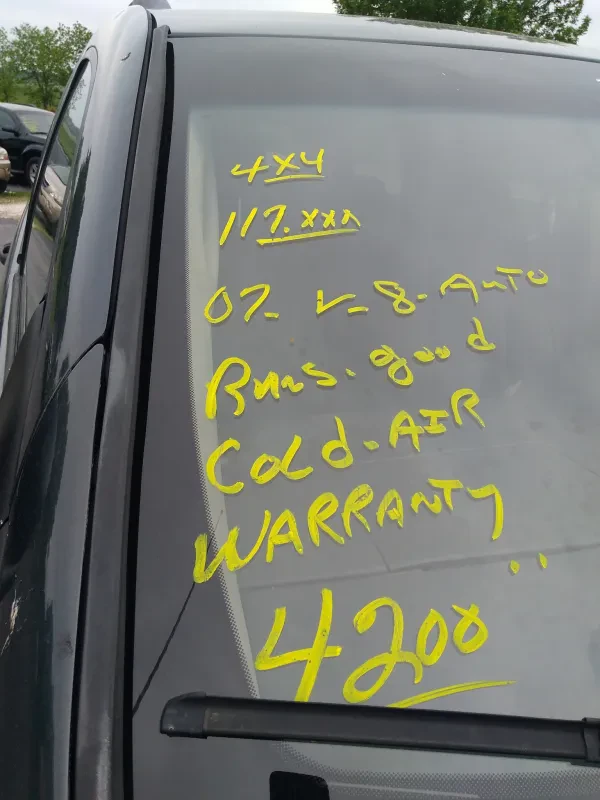 4x4
117.xxx
07- V-8-AuTO
Runs.good
Cold-AIR
WARRANTY
4200